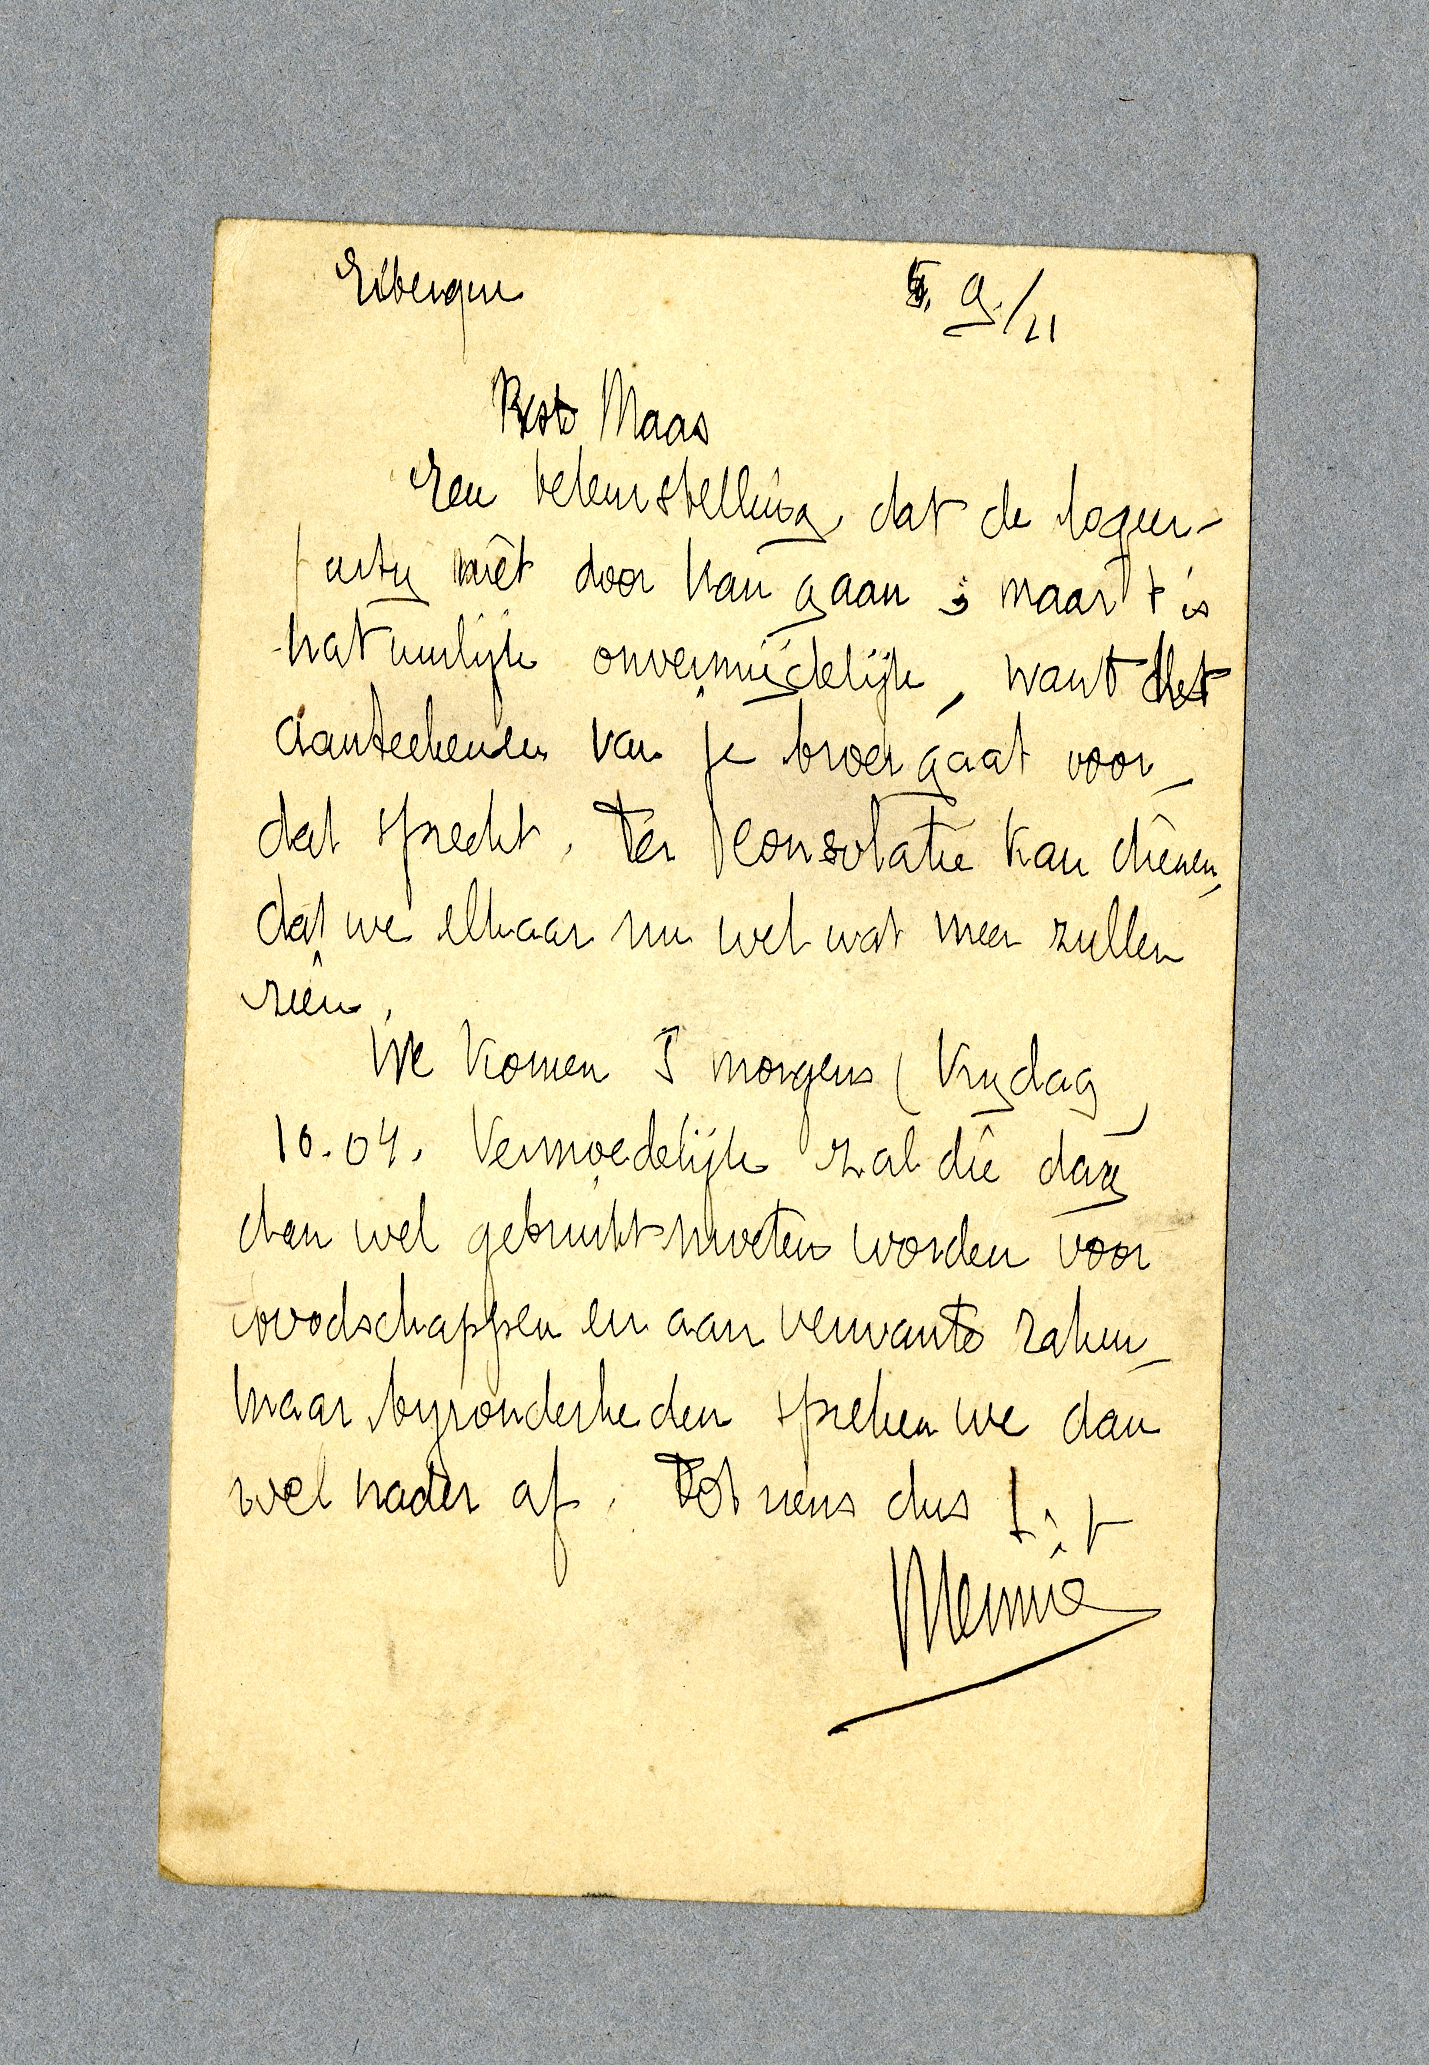 Eibergen 9/21
Beste Maas
Een teleurstelling, dat de logeer-
party niet door kan gaan; maar 't is
natuurlijk onvermijdelijk, want het
aanteekenen van je broer gaat voor_
dat spreekt. Ter consolatie kan dienen,
dat we elkaar nu wel wat meer zullen
zien.
We komen 's morgens ( Vrydag
10.04. Vermoedelijk zal die dag
dan wel gebruikt moeten worden voor
boodschappen en aan verwante zaken_
maar byzonderheden spreken we dan
wel nader af. Tot ziens dus! t.t
Mennie